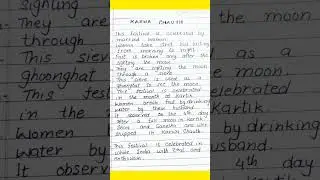 KARWA CHAUTH
This festival is celebrated by
married women
Women take fast and eating
from morning to night
Fast is broken only after the
sighting the moon
They are sighting the moon
through a sieve
This sieve is used as a
ghoonghat to see the moon
This festival is celebrated
in the month of Kartik
Women break fast by drinking
water by their husband
It observed to the 4th day
after a full moon in Kartik
Shiva and Ganesha are wor
shipped in Karwa Chauth
This festival is celebrated in
whole India with zeal and
enthusiasm
sighting
They are
through
This siev
ghoonghat
This fes
in the
Women
water by
It observ
the moon
as a
moon
celebrated
Kartik
by drinking
husband.
4th day